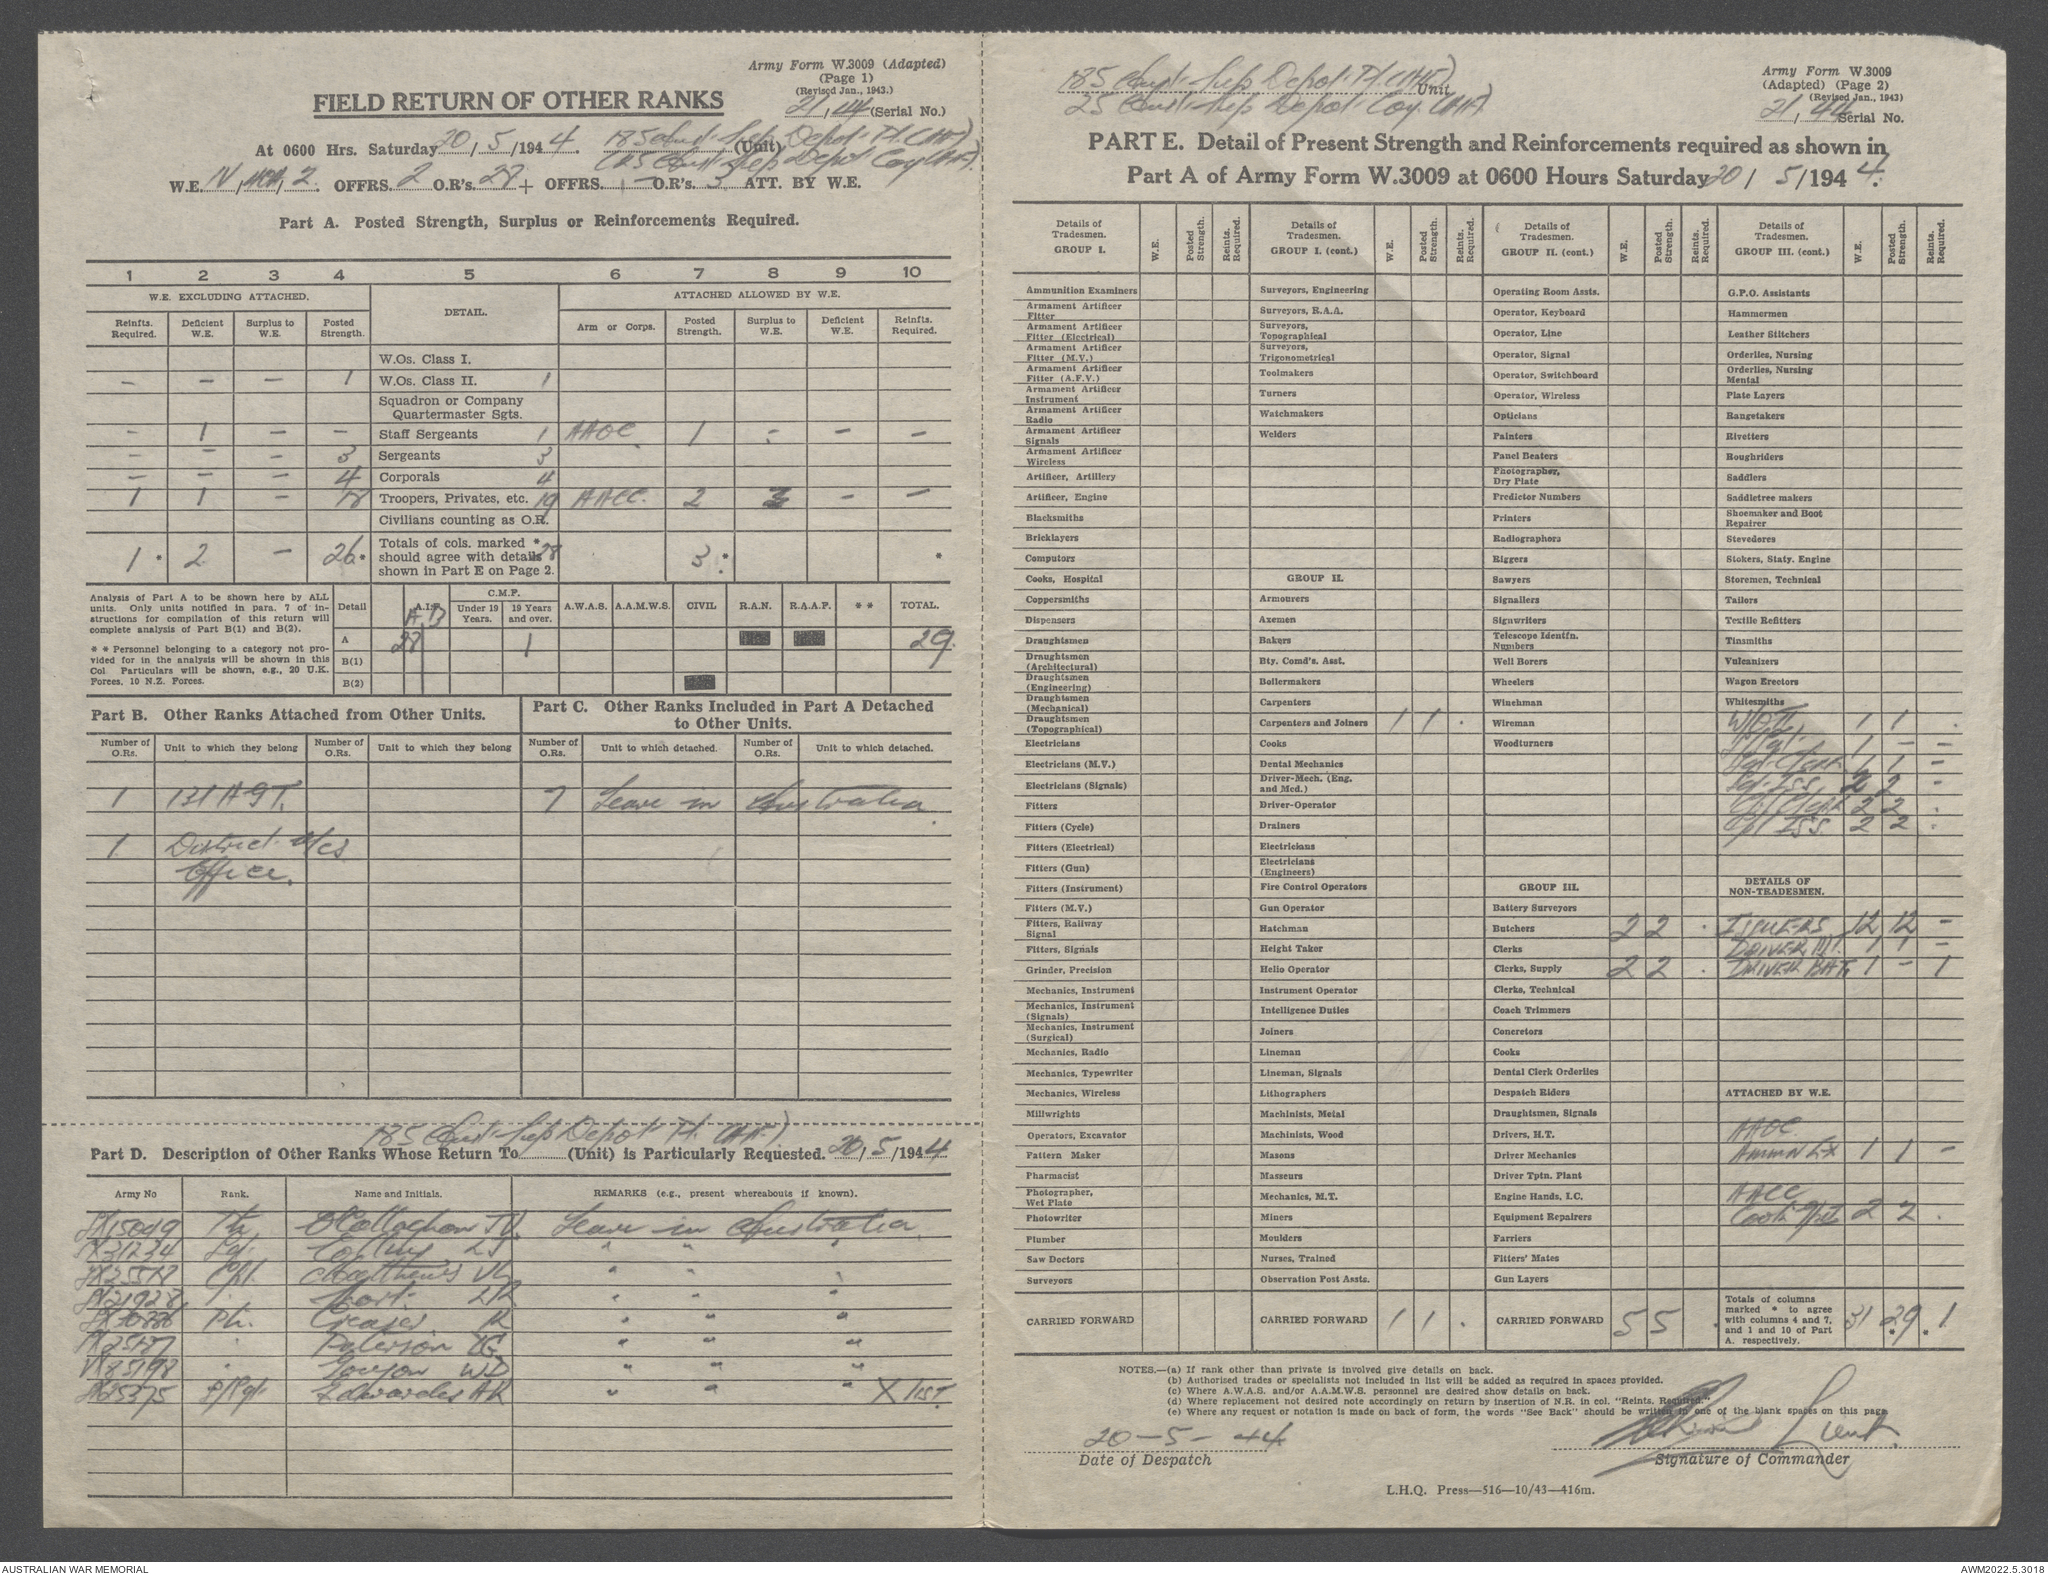 Army Form W.3009 (Adapted)
(Page 1)
(Revised Jan., 1943.)
FIELD RETURN OF OTHER RANKS
21/44 (Serial No.)
At 0600 Hrs. Saturday 20/5/1944. 185 Aust. Sup. Depot Pl. (AIF) (Unit)
(25 Aust. Sup. Depot Coy (AIF).
W.E. IV / / 2. OFFRS. 2 O.R's. 28 + OFFRS. - O.R's. 3 ATT. BY W.E.
Part A. Posted Strength, Surplus or Reinforcements Required.
1 2 3 4 5 6 7 8 9 10
W.E. EXCLUDING ATTACHED. DETAIL. ATTACHED ALLOWED BY W.E.
Reinfts. Required. Deficient W.E. Surplus to W.E. Posted Strength. Arm or Corps. Posted Strength. Surplus to W.E. Deficient W.E. Reints. Required.
W.Os. Class I.
- - - 1 W.Os. Class II. 1
Squadron or Company Quartermaster Sgts.
- 1 - - Staff Sergeants 1 AAOC 1 - - -
- - - 3 Sergeants 3
- - - 4 Corporals 4
1 1 - 18 Troopers, Privates, etc. 19 AACC. 2 - -
Civilians counting as O.R.
1 * 2 - 26 * Totals of cols. marked * should agree with details shown in Part E on Page 2. 28 3 * *
Analysis of Part A to be shown here by ALL units. Only units notified in para. 7 of instructions for compilation of this return will complete analysis of Part B(1) and B(2).
* * Personnel belonging to a category not provided for in the analysis will be shown in this Col Particulars will be shown, e.g., 20 U.K. Forces, 10 N.Z. Forces.
Detail A.I.F. C.M.F. Under 19 Years. 19 Years and over. A.W.A.S. A.A.M.W.S. CIVIL R.A.N. R.A.A.F. * * TOTAL.
A B
A 28 1 29.
B(1)
B(2)
Part B. Other Ranks Attached from Other Units.
Part C. Other Ranks Included in Part A Detached to Other Units.
Number of O.Rs. Unit to which they belong Number of O.Rs. Unit to which they belong Number of O.Rs. Unit to which detached. Number of O.Rs. Unit to which detached.
1 131 AGT. 7 Leave in Australia
1. District
Office.
185 Aust. Sup Depot Pl. (AIF)
Part D. Description of Other Ranks Whose Return To (Unit) is Particularly Requested. 20/5/1944
Army No Rank. Name and Initials. REMARKS (e.g., present whereabouts if known).
SX15049 Pte O'Callaghan JV. Leave in Australia.
Sgt. LJ " " "
Cpl. Matthews " " "
" " "
Pte. Creaser R " " "
" Paterson " " "
VX85198 " WD " " "
Edwardes AR " " " X list.
185 Aust. Sup Depot Pl. (AIF) Unit
25 Aust. Sup Depot Coy (AIF)
Army Form W.3009
(Adapted) (Page 2)
(Revised Jan., 1943)
21/44 Serial No.
PART E. Detail of Present Strength and Reinforcements required as shown in
Part A of Army Form W.3009 at 0600 Hours Saturday 20/5/1944.
Details of Tradesmen. GROUP I. W.E. Posted Strength. Reints. Required.
Ammunition Examiners
Armament Artificer Fitter
Armament Artificer Fitter (Electrical)
Armament Artificer Fitter (M.V.)
Armament Artificer Fitter (A.F.V.)
Armament Artificer Instrument
Armament Artificer Radio
Armament Artificer Signals
Armament Artificer Wireless
Artificer, Artillery
Artificer, Engine
Blacksmiths
Bricklayers
Computors
Cooks, Hospital
Coppersmiths
Dispensers
Draughtsmen
Draughtsmen (Architectural)
Draughtsmen (Engineering)
Draughtsmen (Mechanical)
Draughtsmen (Topographical)
Electricians
Electricians (M.V.)
Electricians (Signals)
Fitters
Fitters (Cycle)
Fitters (Electrical)
Fitters (Gun)
Fitters (Instrument)
Fitters (M.V.)
Fitters, Railway Signal
Fitters, Signals
Grinder, Precision
Mechanics, Instrument
Mechanics, Instrument (Signals)
Mechanics, Instrument (Surgical)
Mechanics, Radio
Mechanics, Typewriter
Mechanics, Wireless
Millwrights
Operators, Excavator
Pattern Maker
Pharmacist
Photographer, Wet Plate
Photowriter
Plumber
Saw Doctors
Surveyors
CARRIED FORWARD
Details of Tradesmen. GROUP I. (cont.) W.E. Posted Strength. Reints. Required.
Surveyors, Engineering
Surveyors, R.A.A.
Surveyors, Topographical
Surveyors, Trigonometrical
Toolmakers
Turners
Watchmakers
Welders
GROUP II.
Armourers
Axemen
Bakers
Bty. Comd's. Asst.
Boilermakers
Carpenters
Carpenters and Joiners 1 1 .
Cooks
Dental Mechanics
Driver-Mech. (Eng. and Med.)
Driver-Operator
Drainers
Electricians
Electricians (Engineers)
Fire Control Operators
Gun Operator
Hatchman
Height Taker
Helio Operator
Instrument Operator
Intelligence Duties
Joiners
Lineman
Lineman, Signals
Lithographers
Machinists, Metal
Machinists, Wood
Masons
Masseurs
Mechanics, M.T.
Miners
Moulders
Nurses, Trained
Observation Post Assts.
CARRIED FORWARD 1 1 .
Details of Tradesmen. GROUP II. (cont.) W.E. Posted Strength. Reints. Required.
Operating Room Assts.
Operator, Keyboard
Operator, Line
Operator, Signal
Operator, Switchboard
Operator, Wireless
Opticians
Painters
Panel Beaters
Photographer, Dry Plate
Predictor Numbers
Printers
Radiographers
Riggers
Sawyers
Signallers
Signwriters
Telescope Identfn. Numbers
Well Borers
Wheelers
Winchman
Wireman
Woodturners
GROUP III.
Battery Surveyors
Butchers 2 2 .
Clerks
Clerks, Supply 2 2 .
Clerks, Technical
Coach Trimmers
Concretors
Cooks
Dental Clerk Orderlies
Despatch Riders
Draughtsmen, Signals
Drivers, H.T.
Driver Mechanics
Driver Tptn. Plant
Engine Hands, I.C.
Equipment Repairers
Farriers
Fitters' Mates
Gun Layers
CARRIED FORWARD 5 5 .
Details of Tradesmen. GROUP III. (cont.) W.E. Posted Strength. Reints. Required.
G.P.O. Assistants
Hammermen
Leather Stitchers
Orderlies, Nursing
Orderlies, Nursing Mental
Plate Layers
Rangetakers
Rivetters
Roughriders
Saddlers
Saddletree makers
Shoemaker and Boot Repairer
Stevedores
Stokers, Staty. Engine
Storemen, Technical
Tailors
Textile Refitters
Tinsmiths
Vulcanizers
Wagon Erectors
Whitesmiths
W/O II 1 1 .
S/Sgt. 1 - -
Sgt. Clerk 1 1 -
Sgt. Iss 2 2 -
Cpl Clerk 2 2 .
Cpl Iss. 2 2 .
DETAILS OF NON-TRADESMEN.
ISSUERS 12 12 -
DRIVER MT. 1 1 -
DRIVER BAT. 1 - 1
ATTACHED BY W.E.
AAOC
Ammn Ex 1 1 -
AACC
Cook 2 2 .
Totals of columns marked * to agree with columns 4 and 7, and 1 and 10 of Part A. respectively. 31 29 * * 1.
NOTES.—(a) If rank other than private is involved give details on back.
(b) Authorised trades or specialists not included in list will be added as required in spaces provided.
(c) Where A.W.A.S. and/or A.A.M.W.S. personnel are desired show details on back.
(d) Where replacement not desired note accordingly on return by insertion of N.R. in col. "Reints. Required."
(e) Where any request or notation is made on back of form, the words "See Back" should be written in one of the blank spaces on this page.
20-5-44 Lieut.
Date of Despatch Signature of Commander
L.H.Q. Press—516—10/43—416m.
AUSTRALIAN WAR MEMORIAL AWM2022.5.3018